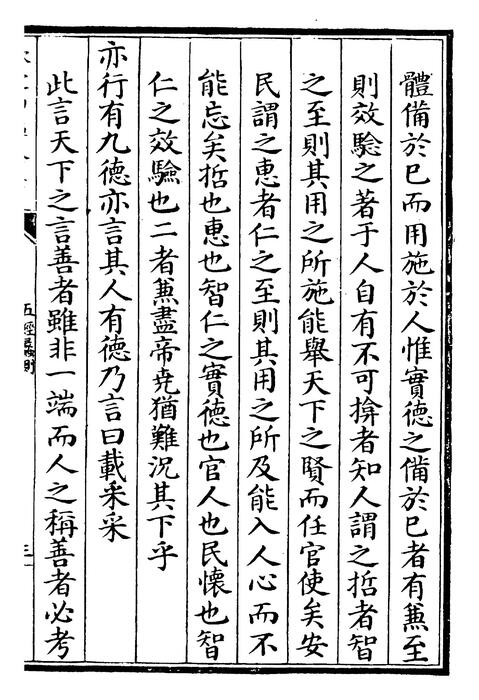 體備於已而用施於人惟實德之備於已者有兼至
則效驗之著于人自有不可揜者知人謂之哲者智
之至則其用之所施能舉天下之賢而任官使矣安
民謂之惠者仁之至則其用之所及能入人心而不
能忘矣哲也惠也智仁之實德也官人也民懷也智
仁之效驗也二者兼盡帝堯猶難況其下乎
亦行有九德亦言其人有德乃言曰載采采
此言天下之言善者雖非一端而人之稱善者必考
五經蠡測